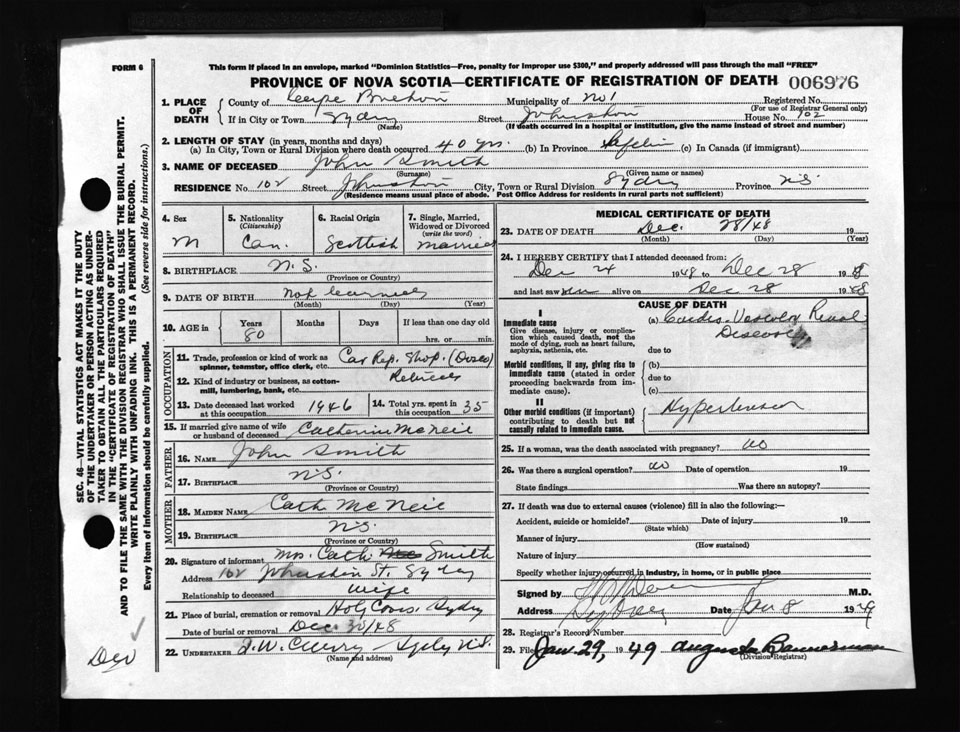 FORM 6
This form if placed in an envelope, marked "Dominion Statistics—Free, penalty for improper use $300," and properly addressed will pass through the mail "FREE"
PROVINCE OF NOVA SCOTIA—CERTIFICATE OF REGISTRATION OF DEATH 006976
1. PLACE OF DEATH
County of Cape Breton Municipality of No 1 Registered No.
(For use of Registrar General only)
If in City or Town Sydney Street Johnston House No. 102
(Name) (If death occurred in a hospital or institution, give the name instead of street and number)
2. LENGTH OF STAY (in years, months and days)
(a) In City, Town or Rural Division where death occurred 40 yrs. (b) In Province (c) In Canada (if immigrant)
3. NAME OF DECEASED John Smith
(Surname) (Given name or names)
RESIDENCE No. 102 Street Johnston City, Town or Rural Division Sydney Province N.S.
(Residence means usual place of abode. Post Office Address for residents in rural parts not sufficient)
4. Sex M
5. Nationality (Citizenship) Can.
6. Racial Origin Scottish
7. Single, Married, Widowed or Divorced (write the word) Married
8. BIRTHPLACE N.S.
(Province or Country)
9. DATE OF BIRTH Not
(Month) (Day) (Year)
10. AGE in Years Months Days If less than one day old
80 hrs. or min.
OCCUPATION
11. Trade, profession or kind of work as spinner, teamster, office clerk, etc. Car Rep. Shop. (Dosco)
12. Kind of industry or business, as cotton-mill, lumbering, bank, etc. Retired
13. Date deceased last worked at this occupation 1946
14. Total yrs. spent in this occupation 35
15. If married give name of wife or husband of deceased Catherine McNeil
FATHER
16. NAME John Smith
17. BIRTHPLACE N.S.
(Province or Country)
MOTHER
18. MAIDEN NAME Cath McNeil
19. BIRTHPLACE N.S.
(Province or Country)
20. Signature of informant Mrs. Cath Smith
Address 102 Johnston St. Sydney
Relationship to deceased wife
21. Place of burial, cremation or removal Holy Cross, Sydney
Date of burial or removal Dec. 30/48
22. UNDERTAKER J. W. Curry Sydney N.S.
(Name and address)
MEDICAL CERTIFICATE OF DEATH
23. DATE OF DEATH Dec. 28/48 19
(Month) (Day) (Year)
24. I HEREBY CERTIFY that I attended deceased from:
Dec 24 1948 to Dec 28 1948
and last saw him alive on Dec 28 1948
CAUSE OF DEATH
I
Immediate cause
Give disease, injury or complication which caused death, not the mode of dying, such as heart failure, asphyxia, asthenia, etc.
(a) Cardio-Vascular Renal
Disease
due to
Morbid conditions, if any, giving rise to immediate cause (stated in order proceeding backwards from immediate cause).
(b)
due to
(c)
II
Other morbid conditions (if important) contributing to death but not causally related to immediate cause.
Hypertension
25. If a woman, was the death associated with pregnancy? no
26. Was there a surgical operation? no Date of operation 19
State findings Was there an autopsy?
27. If death was due to external causes (violence) fill in also the following:—
Accident, suicide or homicide? Date of injury 19
(State which)
Manner of injury
(How sustained)
Nature of injury
Specify whether injury occurred in industry, in home, or in public place
Signed by M.D.
Address Sydney Date Jan 8 1949
28. Registrar's Record Number
29. Filed Jan. 29, 1949 Augusta Bannerman
(Division Registrar)
SEC. 46—VITAL STATISTICS ACT MAKES IT THE DUTY
OF THE UNDERTAKER OR PERSON ACTING AS UNDER-
TAKER TO OBTAIN ALL THE PARTICULARS REQUIRED
IN THE "CERTIFICATE OF REGISTRATION OF DEATH"
AND TO FILE THE SAME WITH THE DIVISION REGISTRAR WHO SHALL ISSUE THE BURIAL PERMIT.
WRITE PLAINLY WITH UNFADING INK. THIS IS A PERMANENT RECORD.
Every item of Information should be carefully supplied. (See reverse side for instructions.)